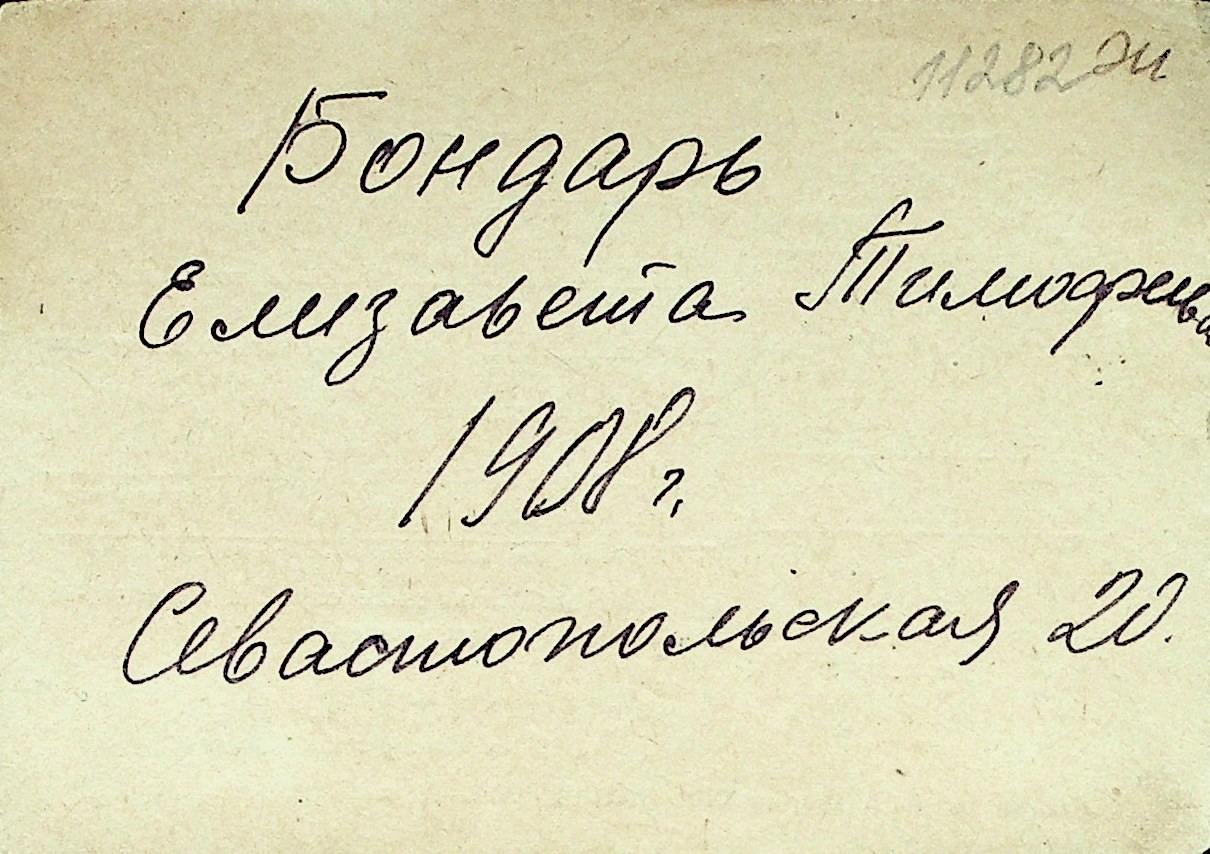 11282 эи
Бондарь
Елизавета Тимофеевна
1908 г.
Севастопольская 20.